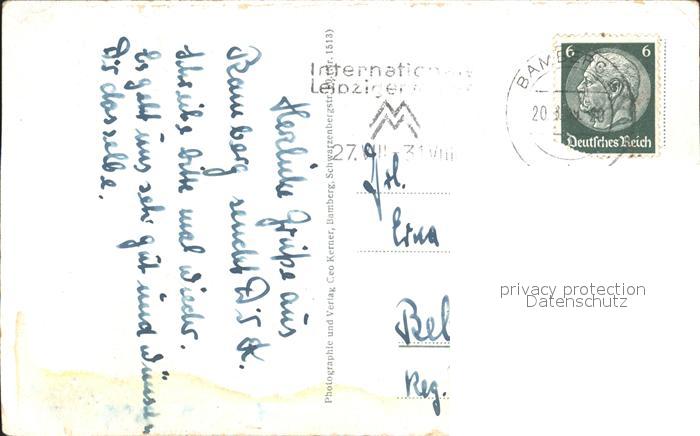 Herzliche Grüße aus
Bamberg sendet Dir
Schreibe bitte mal wieder.
Es geht uns sehr gut und wünschen
Dir dasselbe.
Photographie und Verlag Geo Kerner, Bamberg, Schwarzenbergstr. Nr. 1513)
Internationale
Leipziger
27.VIII-31.VIII
BAMBERG
20.8.
6 6
Deutsches Reich
Frl.
Erna
Bel
Reg.
privacy protection
Datenschutz